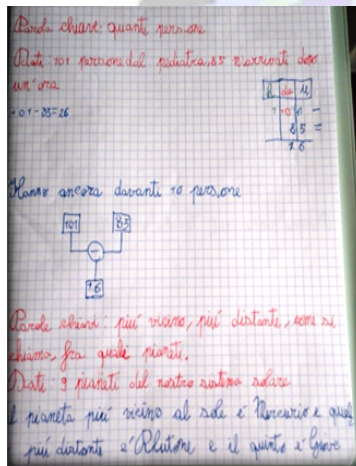 Parola chiave: quante persone
Dati: 101 persone dal pediatra, 85 arrivati dopo
un'ora
101-85=16
h da u
101 -
85 =
16
Hanno ancora davanti 10 persone
101 85
-
16
Parole chiavi: piú vicino, piú distante, come si
chiama, fra quali pianeti.
Dati: 9 pianeti del nostro sistema solare
Il pianeta piú vicino al sole é Mercurio e quel
piú distante é Plutone e il quinto é Giove